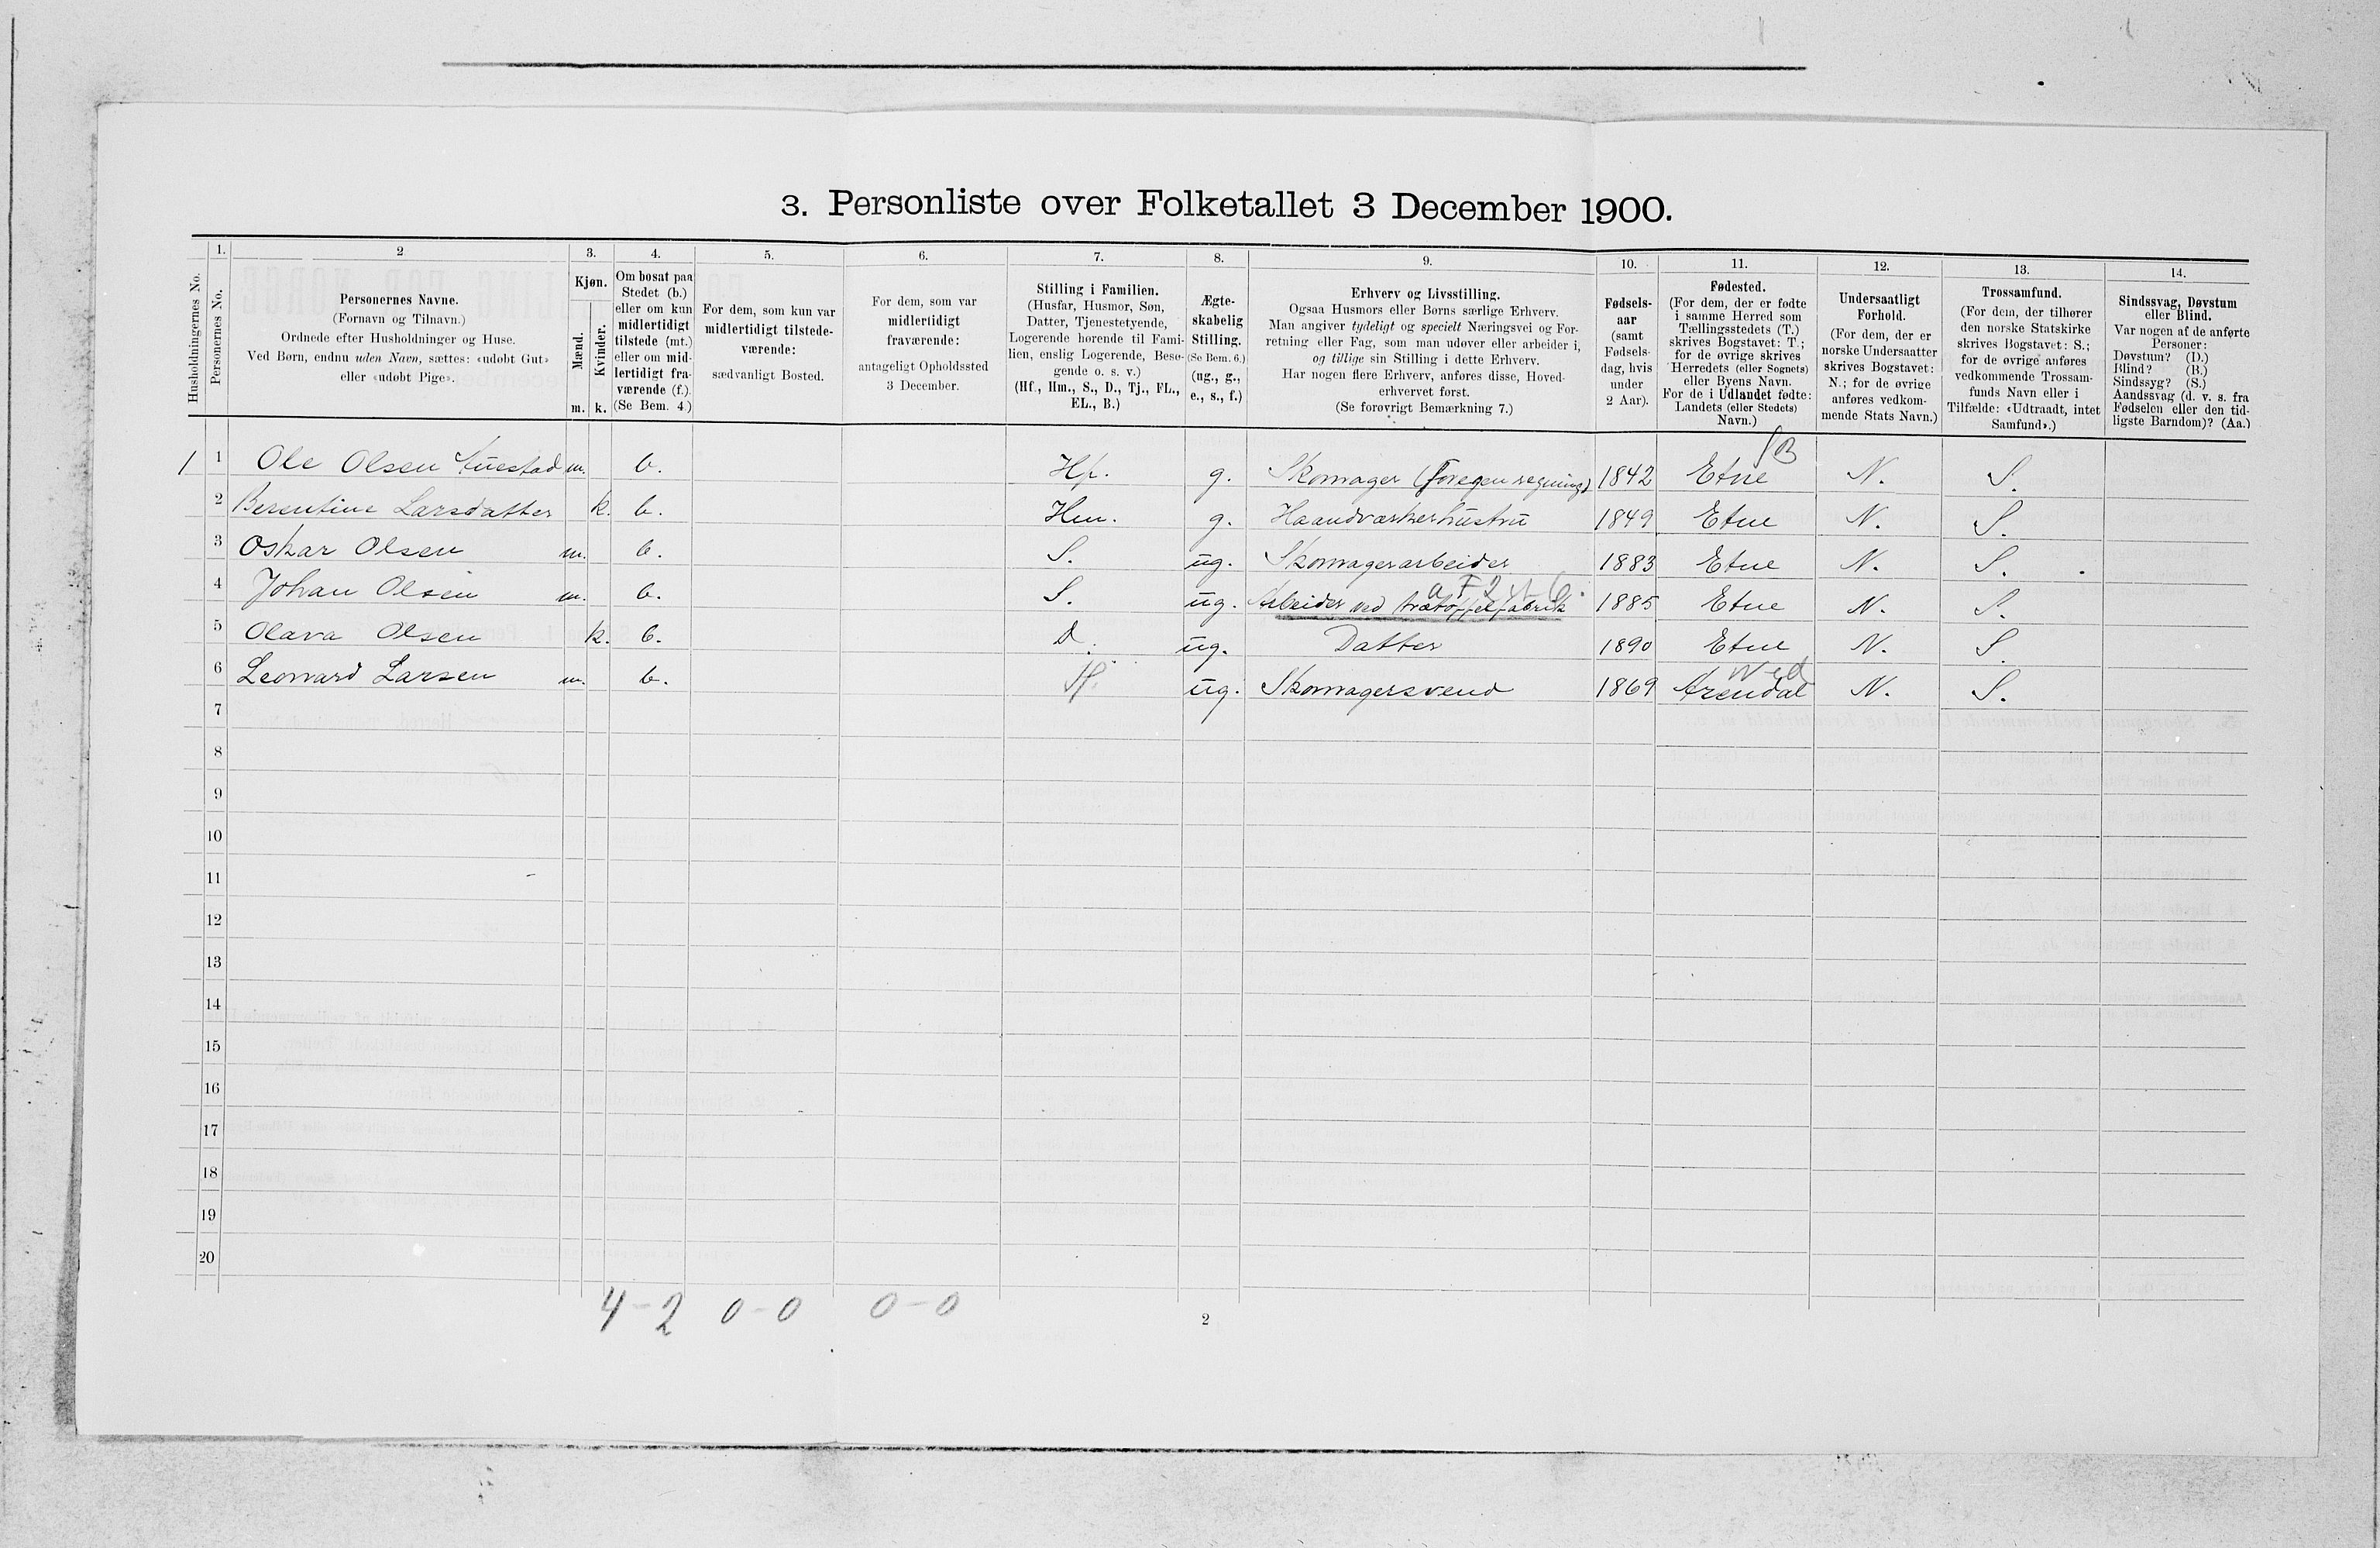 3. Personliste over Folketallet 3 December 1900.
Husholdningernes No.
1.
Personernes No.
2
Personernes Navne.
(Fornavn og Tilnavn.)
Ordnede efter Husholdninger og Huse.
Ved Børn, endnu uden Navn, sættes: «udøbt Gut»
eller «udøbt Pige».
3.
Kjøn.
Mænd.
Kvinder.
m. k.
4.
Om bosat paa
Stedet (b.)
eller om kun
midlertidigt
tilstede (mt.)
eller om mid-
lertidigt fra-
værende (f.).
(Se Bem. 4.)
5.
For dem, som kun var
midlertidigt tilstede-
værende:
sædvanligt Bosted.
6.
For dem, som var
midlertidigt
fraværende:
antageligt Opholdssted
3 December.
7.
Stilling i Familien.
(Husfar, Husmor, Søn,
Datter, Tjenestetyende,
Logerende hørende til Fami-
lien, enslig Logerende, Besø-
gende o. s. v.)
(Hf., Hm., S., D., Tj., FL.,
EL., B.)
8.
Ægte-
skabelig
Stilling.
(Se Bem. 6.)
(ug., g.,
e., s., f.)
9.
Erhverv og Livsstilling.
Ogsaa Husmors eller Børns særlige Erhverv.
Man angiver tydeligt og specielt Næringsvei og For-
retning eller Fag, som man udøver eller arbeider i,
og tillige sin Stilling i dette Erhverv.
Har nogen flere Erhverv, anføres disse, Hoved-
erhvervet først.
(Se forøvrigt Bemærkning 7.)
10.
Fødsels-
aar
(samt
Fødsels-
dag, hvis
under
2 Aar).
11.
Fødested.
(For dem, der er fødte
i samme Herred som
Tællingsstedets (T.)
skrives Bogstavet: T.;
for de øvrige skrives
Herredets (eller Sognets)
eller Byens Navn.
For de i Udlandet fødte:
Landets (eller Stedets)
Navn.)
12.
Undersaatligt
Forhold.
(For dem, der er
norske Undersaatter
skrives Bogstavet:
N.; for de øvrige
anføres vedkom-
mende Stats Navn.)
13.
Trossamfund.
(For dem, der tilhører
den norske Statskirke
skrives Bogstavet: S.;
for de øvrige anføres
vedkommende Trossam-
funds Navn eller i
Tilfælde: «Udtraadt, intet
Samfund».)
14.
Sindssvag, Døvstum
eller Blind.
Var nogen af de anførte
Personer:
Døvstum? (D.)
Blind? (B.)
Sindssyg? (S.)
Aandssvag (d. v. s. fra
Fødselen eller den tid-
ligste Barndom)? (Aa.)
SB
1 1 Ole Olsen m. b. Hf. g. Skomager (for egen regning) 1842 Etne N. S.
2 Berentine Larsdatter k. b. Hm. g. Haandværkerhustru 1849 Etne N. S.
3 Oskar Olsen m. b. S. ug. Skomagerarbeider 1883 Etne N. S.
4 Johan Olsen m. b. S. ug. Arbeider ved trætøffelfabrik 1885 Etne N. S.
5 Olava Olsen k. b. D. ug. Datter 1890 Etne N. S
Ned
6 Leonard Larsen m. b. ug. Skomagersvend 1869 Arendal N. S.
7
8
9
10
11
12
13
14
15
16
17
18
19
20
4-2 0-0 0-0
2